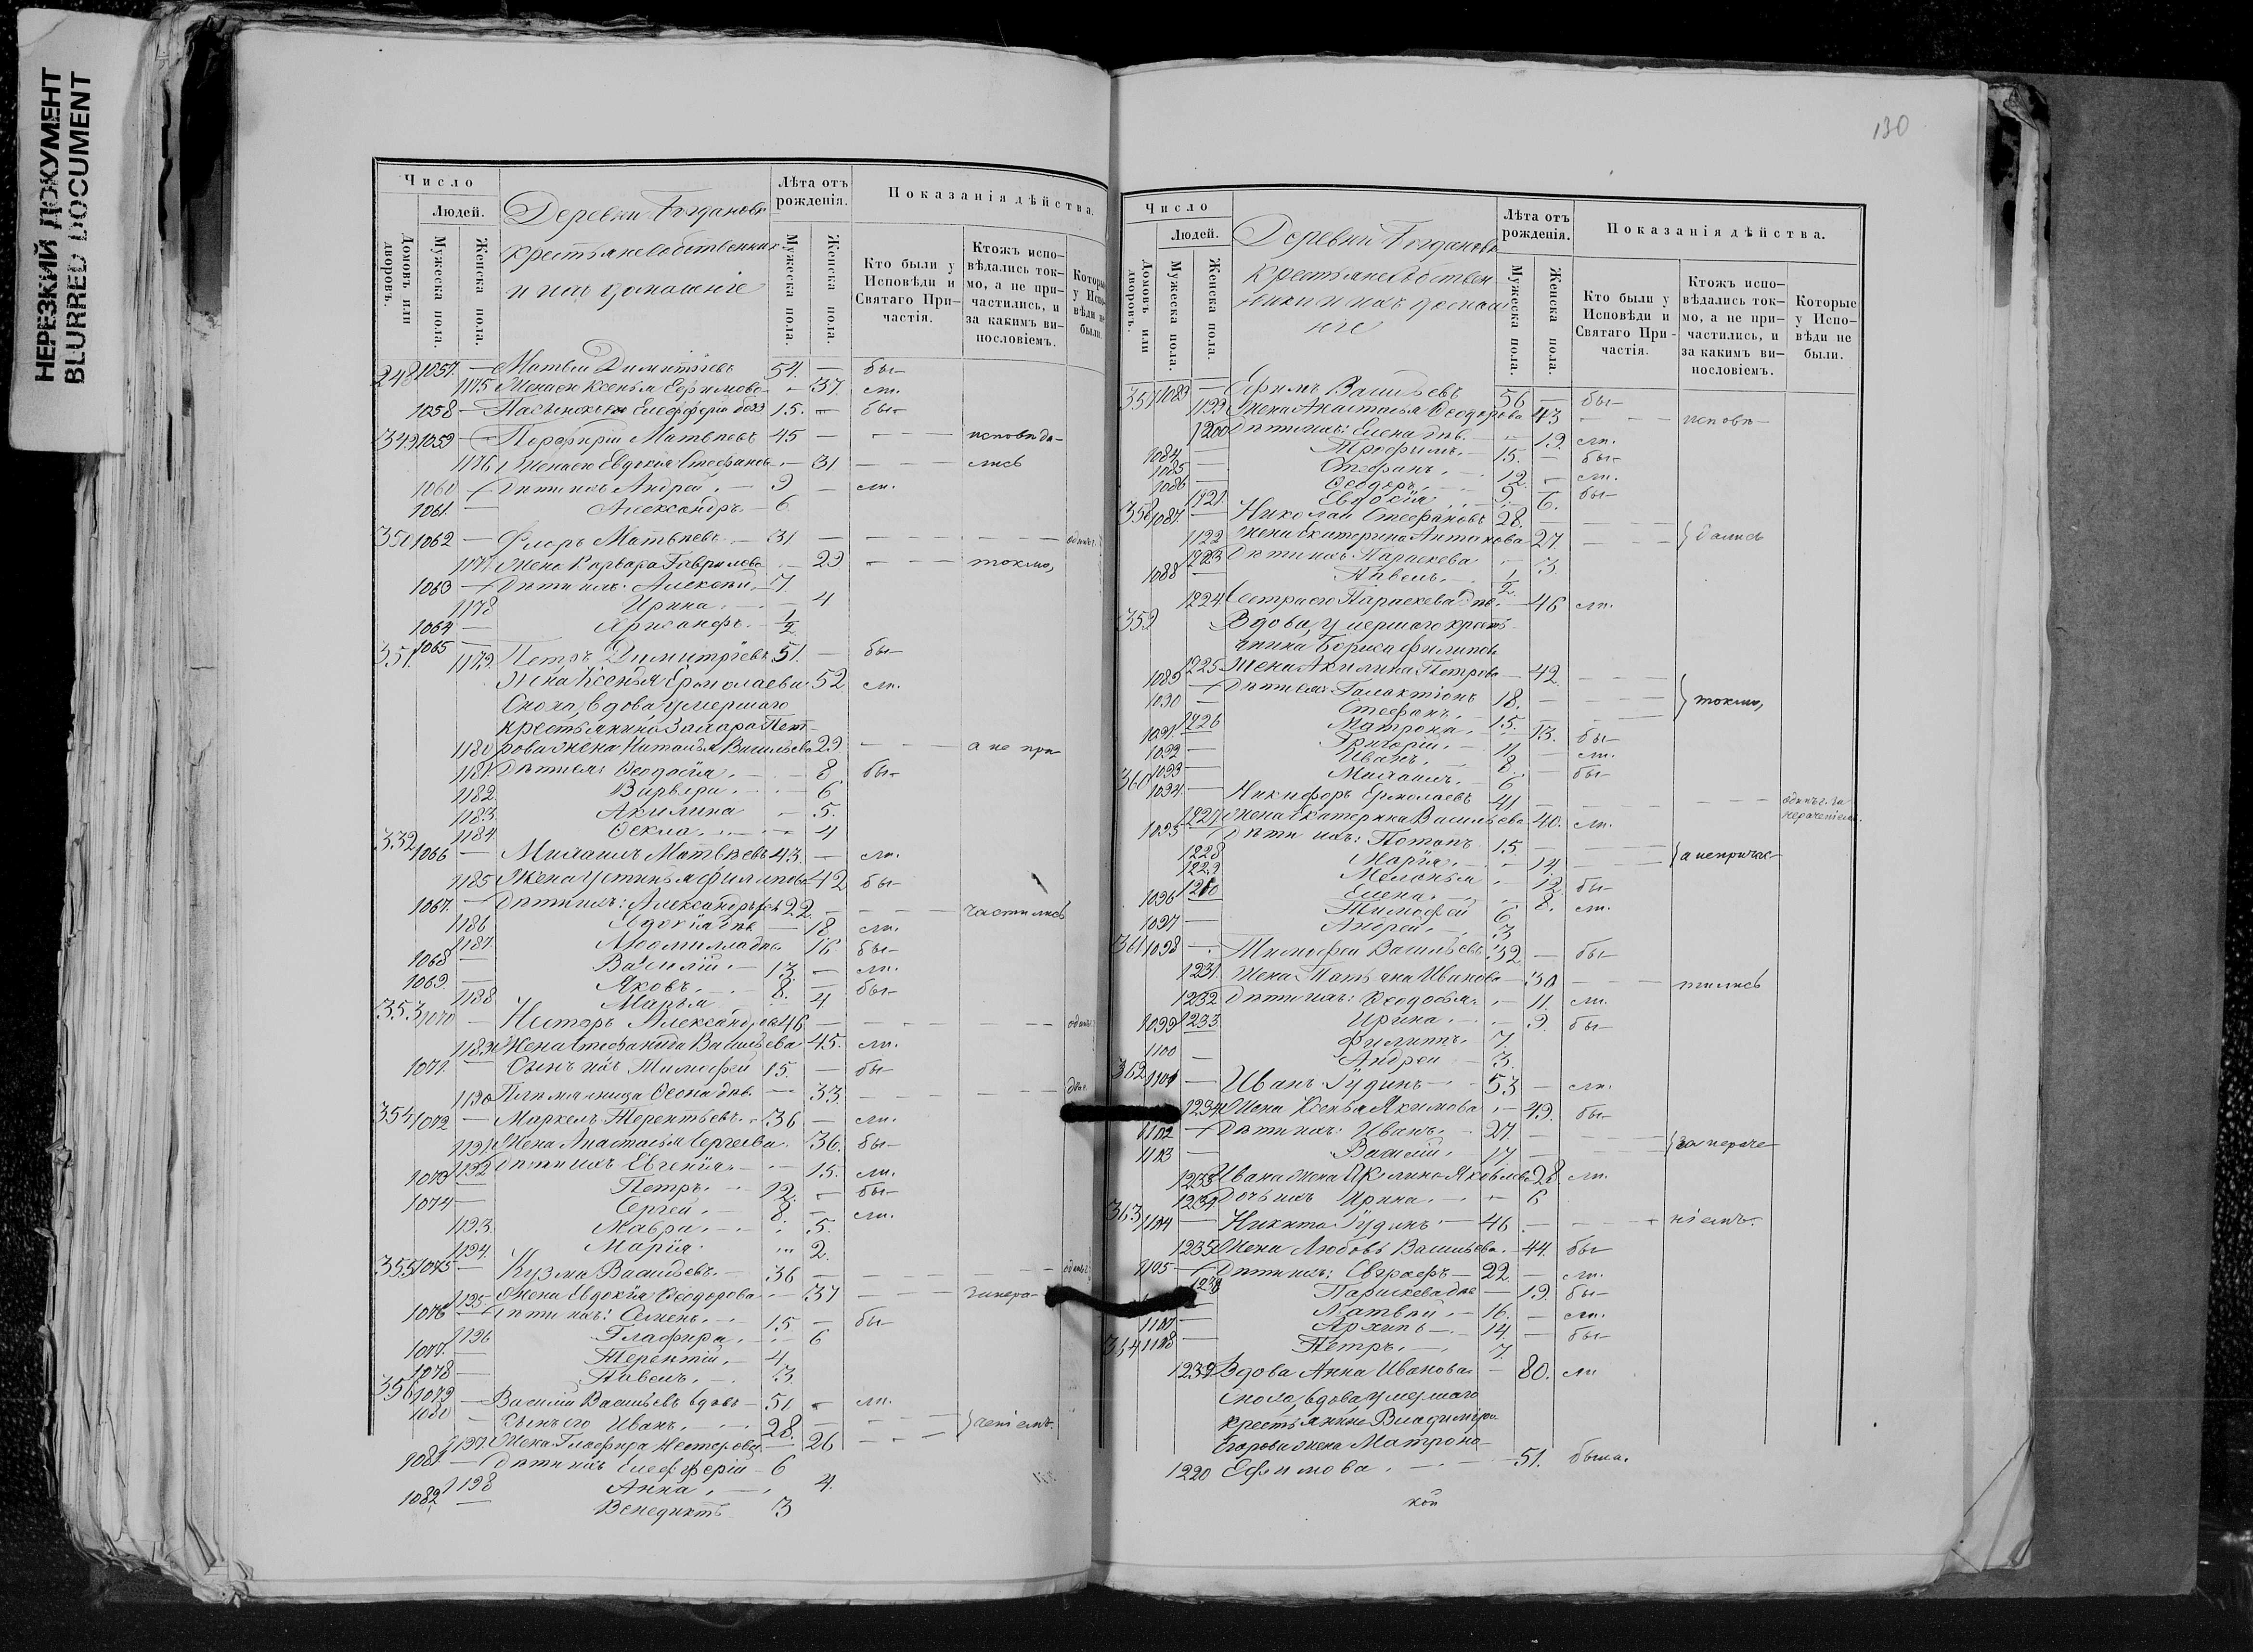 НЕРЕЗКИЙ ДОКУМЕНТ
BLURRED DOCUMENT
Число
Людей.
Домовъ или дворовъ.
Мужеска пола.
Женска пола.
Деревни Богдановк
крестьяне собственник
и ихъ домашніе
Лѣта отъ рожденія.
Мужеска пола.
Женска пола.
Показанія дѣйства.
Кто были у Исповѣди и Святаго Причастія.
Ктожъ исповѣдались токмо, а не причастились, и за какимъ винословіемъ.
Которые у Исповѣди не были.
248 1057. — Матвей Димитріевъ 54. — бы
1175 Жена его Ксенья Ефимова — 37. ли.
1058 — Пасынокъ его Елефферій 15. — бы
349 1059 — Порфирій Матвѣевъ 45 — исповѣда-
1176 Жена его Евдокія Стефанова — 31 — лись
1060 — Дѣти ихъ Андрей 9 — ли.
1061. — Александръ 6
350 1062 — Флоръ Матвѣевъ 31 —
1177. Жена Варвара Гаврилова — 29 — токмо,
1063 — Дѣти ихъ: Алексѣй 7.
1178 Ирина 4
1064 — Хрисанфъ 1/2
351. 1065 1179. Петръ Димитріевъ 51. — бы
Жена Ксенья Ермолаева 52 ли.
Сноха, вдова умершаго
крестьянина Захара Пет-
1180 рова жена Наталья Васильева 29 — а не при-
1181. Дѣти ея: Ѳеодосія 8 бы
1182 Варвара 6
1183 Акилина 5.
1184 Ѳекла 4
332 1066 — Михаилъ Матвѣевъ 43. — ли.
1185 Жена Устинья Филипова 42 бы
1067. — Дѣти ихъ: Александръ 22. — частились
1186 Евдокія 18 ли.
1187. Людмилла 16. бы
1068 — Василій 13. — ли.
1069. — Яковъ 8. бы
1188 Марья 4
353 1070 — Несторъ Александровъ 46 —
1189 Жена Стефанида Васильева 45. ли.
1071. — Сынъ ихъ Тимофей 15. — бы
1190 Племянница Елена 33.
354 1072 — Маркелъ Терентьевъ 36 — ли.
1191 Жена Анастасья Сергеева 36. бы
1192 Дѣти ихъ Евгенія 15. ли.
1073 — Петръ 12. — бы
1074 — Сергей 8 — ли.
1193. Мавра 5.
1194. Марія 2.
355 1075 — Кузма Васильевъ 36 —
1195 Жена Евдокія Ѳеодорова 37 — занера-
1076 — Дѣти ихъ: Семенъ 15 — бы
1196 Глафира 6
1077. — Терентій 4
1078 — Павелъ 3.
356 1079 — Василій Васильевъ вдовъ 51 — ли.
1080 — Сынъ его Иванъ 28. — ченіемъ.
1197. Жена Глафира Нестерова 26
1081 — Дѣти ихъ Елефферій 6
1198 Анна 4.
1082 — Венедиктъ 3
130
Число
Людей.
Домовъ или дворовъ.
Мужеска пола.
Женска пола.
Деревни Богдановк
крестьяне собствен-
ники и ихъ домаш-
ніе
Лѣта отъ рожденія.
Мужеска пола.
Женска пола.
Показанія дѣйства.
Кто были у Исповѣди и Святаго Причастія.
Ктожъ исповѣдались токмо, а не причастились, и за какимъ винословіемъ.
Которые у Исповѣди не были.
357 1083 — Ефимъ Васильевъ 56 — бы
1199 Жена Анастасья Ѳеодорова 43 — исповѣ-
1200 Дѣти ихъ: Елена 19. ли.
1084. — Трофимъ 15. — бы
1085 — Стефанъ 12 — ли.
1086 — Ѳеодоръ 9 бы
1221. Евдокія 6.
358 1087. — Николай Стефановъ 28.
1122 Жена Екатерина Антипова 27. — дались
1223 Дѣти ихъ Параскева 3
1088 — Павелъ 1/2
1224. Сестра его Параскева 46 ли.
359 Вдова, умершаго кресть-
янина Бориса Филипова
1225 Жена Акилина Петрова 42
1089 — Дѣти ея: Галактіонъ 18. — токмо,
1090 — Стефанъ 15.
1226 Матрона 13. бы
1091. — Григорій 11 — ли.
1092 — Иванъ 8. — бы
1093 — Михаилъ 6
360 1094. — Никифоръ Ермолаевъ 41 —
нераченіемъ.
1227 Жена Екатерина Васильева 40. ли.
1095 — Дѣти ихъ: Потапъ 15. —
1228 Марія 14. — а непричас-
1229 Меланья 12 бы
1210 Елена 8. ли.
1096 — Тимофей 6
1097 — Андрей 3
361 1098 — Тимофей Васильевъ 32 — бы
1231. Жена Татьяна Иванова 30 — тились
1232 Дѣти ихъ: Ѳеодосья 11 ли.
1233 Ирина 9. бы
1099 Филиппъ 7.
1100 — Андрей 3.
362 1101 — Иванъ Гудинъ 53 — ли.
1234 Жена Ксенья Якимова 49. бы
1102 — Дѣти ихъ: Иванъ 27. — за нераче-
1103 — Василій 17 —
1233 Ивана жена Акилина Яковлева 28. ли.
1234 Дочь ихъ Ирина 6
363 1104 — Никита Гудинъ 46 — ніемъ.
1235 Жена Любовь Васильева 44. бы
1105 — Дѣти ихъ: Евграфъ 22. — ли.
1238 Параскева 19. бы
Матвѣй 16. — ли.
1107 — Архипъ 14. — бы
364 1108 — Петръ 7.
1239 Вдова Анна Иванова 80. ли
Сноха, вдова, умершаго
крестьянина Владиміра
Егорова жена Матрона
1220 Ефимова 51. была.